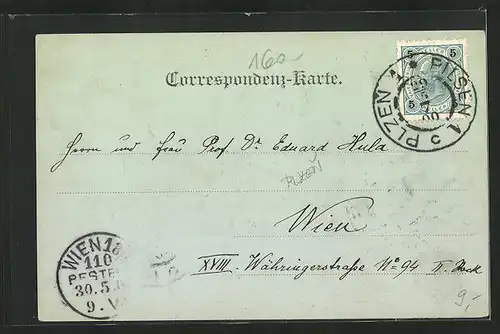 160
Correspondenz-Karte.
5 5
5
PLZEN 1 PILSEN 1
Herrn und Frau Prof Dr Eduard Hula
PLZEŇ
Wien
XVIII. Währingerstraße No 94 II. Stock
WIEN 18
110
BESTE
30.5.0
9.V
9,-